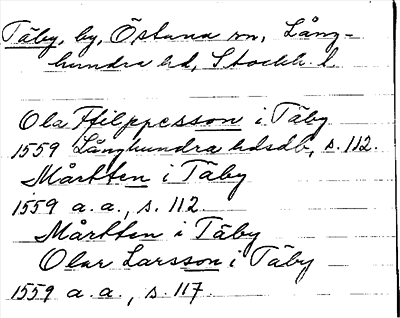 Täby, by, Östuna sn, Lång-
hundra hd, Stockh. l.
Ola Ffilppesson i Täby
1559 Långhundra hdsdb, s. 112.
Mårtten i Täby
1559 a. a., s. 112.
Mårtten i Täby
Olar Larsson i Täby
1559 a. a., s. 117.